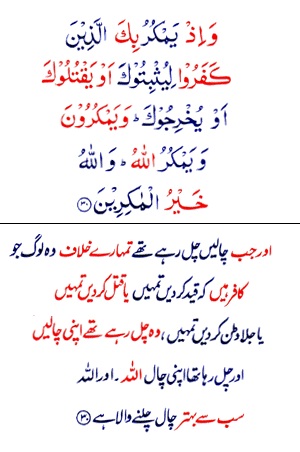 وَاِذْ يَمْكُرُ بِكَ الَّذِيْنَ
كَفَرُوْا لِيُثْبِتُوْكَ اَوْ يَقْتُلُوْكَ
اَوْ يُخْرِجُوْكَ ؕ وَيَمْكُرُوْنَ
وَيَمْكُرُ اللهُ ؕ وَاللهُ
خَيْرُ الْمٰكِرِيْنَ ﴿۳۰﴾
اور جب چالیں چل رہے تھے تمہارے خلاف وہ لوگ جو
کافر ہیں کہ قید کر دیں تمہیں یا قتل کر دیں تمہیں
یا جلاوطن کر دیں تمہیں، وہ چل رہے تھے اپنی چالیں
اور چل رہا تھا اپنی چال اللہ۔ اور اللہ
سب سے بہتر چال چلنے والا ہے ﴿۳۰﴾